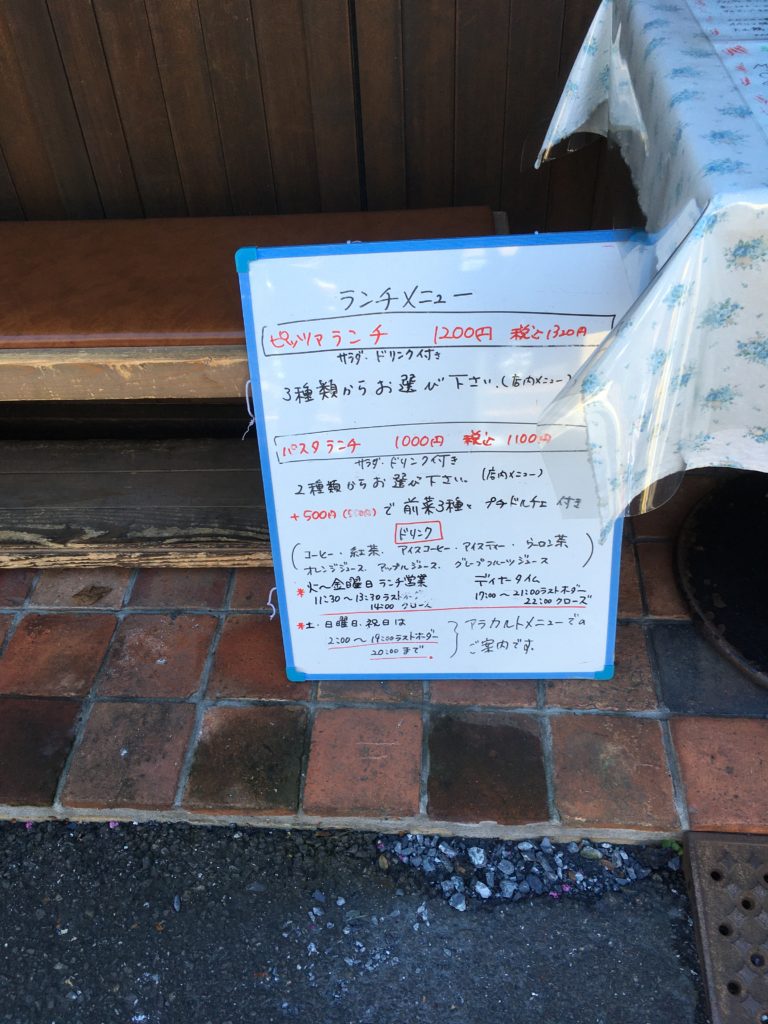 ランチメニュー
ピッツァランチ 1200円 税込1320円
サラダ・ドリンク付き
3種類からお選び下さい。(店内メニュー)
パスタランチ 1000円 税込 1100円
サラダ・ドリンク付き
2種類からお選び下さい。(店内メニュー)
+500円 で 前菜3種と プチドルチェ 付き
ドリンク
(コーヒー・紅茶・アイスコーヒー・アイスティー・ウーロン茶
オレンジジュース アップルジュース グレープフルーツジュース)
*火〜金曜日ランチ営業 ディナータイム
11:30〜13:30ラスト 17:00〜21:00ラストオーダー
14:00クローズ 22:00クローズ
*土・日曜日、祝日は アラカルトメニューでの
2:00〜19:00ラストオーダー ご案内です。
20:00まで。